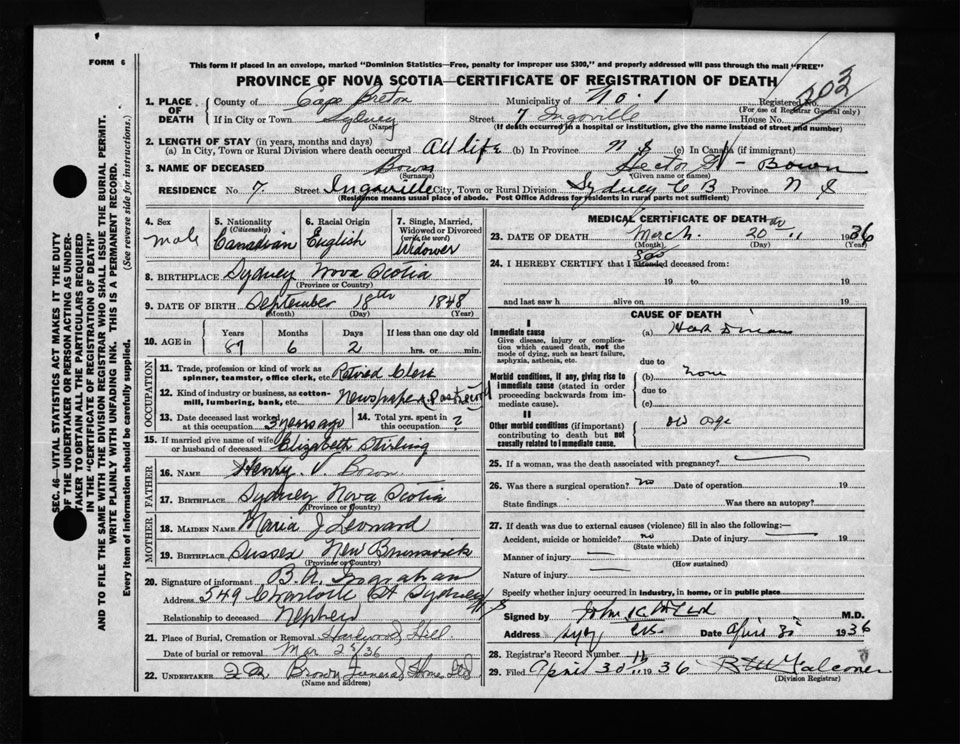 FORM 6
This form if placed in an envelope, marked "Dominion Statistics—Free, penalty for improper use $300," and properly addressed will pass through the mail "FREE"
PROVINCE OF NOVA SCOTIA—CERTIFICATE OF REGISTRATION OF DEATH
203
1. PLACE OF DEATH { County of Cape Breton Municipality of No. 1 Registered No.
(For use of Registrar General only)
If in City or Town Sydney Street 7 Ingoville House No.
(Name) (If death occurred in a hospital or institution, give the name instead of street and number)
2. LENGTH OF STAY (in years, months and days)
(a) In City, Town or Rural Division where death occurred All life (b) In Province N S (c) In Canada (if immigrant)
3. NAME OF DECEASED Bown Hector Bown
(Surname) (Given name or names)
RESIDENCE No. 7 Street Ingoville City, Town or Rural Division Sydney C B Province N S
(Residence means usual place of abode. Post Office Address for residents in rural parts not sufficient)
SEC. 46—VITAL STATISTICS ACT MAKES IT THE DUTY
OF THE UNDERTAKER OR PERSON ACTING AS UNDER-
TAKER TO OBTAIN ALL THE PARTICULARS REQUIRED
IN THE "CERTIFICATE OF REGISTRATION OF DEATH"
AND TO FILE THE SAME WITH THE DIVISION REGISTRAR WHO SHALL ISSUE THE BURIAL PERMIT.
WRITE PLAINLY WITH UNFADING INK. THIS IS A PERMANENT RECORD.
Every item of information should be carefully supplied. (See reverse side for instructions.)
4. Sex Male
5. Nationality (Citizenship) Canadian
6. Racial Origin English
7. Single, Married, Widowed or Divorced (write the word) Widower
8. BIRTHPLACE Sydney Nova Scotia
(Province or Country)
9. DATE OF BIRTH September 18th 1848
(Month) (Day) (Year)
10. AGE in Years Months Days If less than one day old
87 6 2 hrs. or min.
OCCUPATION
11. Trade, profession or kind of work as spinner, teamster, office clerk, etc. Retired Clerk
12. Kind of industry or business, as cotton-mill, lumbering, bank, etc. Newspaper
13. Date deceased last worked at this occupation 3 years ago
14. Total yrs. spent in this occupation ?
15. If married give name of wife or husband of deceased Elizabeth Stirling
FATHER
16. NAME Henry V. Bown
17. BIRTHPLACE Sydney Nova Scotia
(Province or Country)
MOTHER
18. MAIDEN NAME Maria J Leonard
19. BIRTHPLACE Sussex New Brunswick
(Province or Country)
20. Signature of informant B. A. Ingraham
Address 549 Charlotte St Sydney N S
Relationship to deceased Nephew
21. Place of Burial, Cremation or Removal Hardwood Hill
Date of burial or removal Mar 23/36
22. UNDERTAKER Brown Funeral Home Ltd
(Name and address)
MEDICAL CERTIFICATE OF DEATH
23. DATE OF DEATH March 20th 1936
(Month) (Day) (Year)
24. I HEREBY CERTIFY that I attended deceased from: saw
19 to 19
and last saw h alive on 19
CAUSE OF DEATH
I
Immediate cause (a) Heart Disease
Give disease, injury or complication which caused death, not the mode of dying, such as heart failure, asphyxia, asthenia, etc.
due to
Morbid conditions, if any, giving rise to immediate cause (stated in order proceeding backwards from immediate cause).
(b) none
due to
(c)
II
Other morbid conditions (if important) contributing to death but not causally related to immediate cause.
old age
25. If a woman, was the death associated with pregnancy?
26. Was there a surgical operation? no Date of operation 19
State findings Was there an autopsy?
27. If death was due to external causes (violence) fill in also the following:
Accident, suicide or homicide? no Date of injury 19
(State which)
Manner of injury
(How sustained)
Nature of injury
Specify whether injury occurred in industry, in home, or in public place
Signed by John K McLeod M.D.
Address Syd C.B. Date April 1936
28. Registrar's Record Number 11
29. Filed April 30 1936
(Division Registrar)